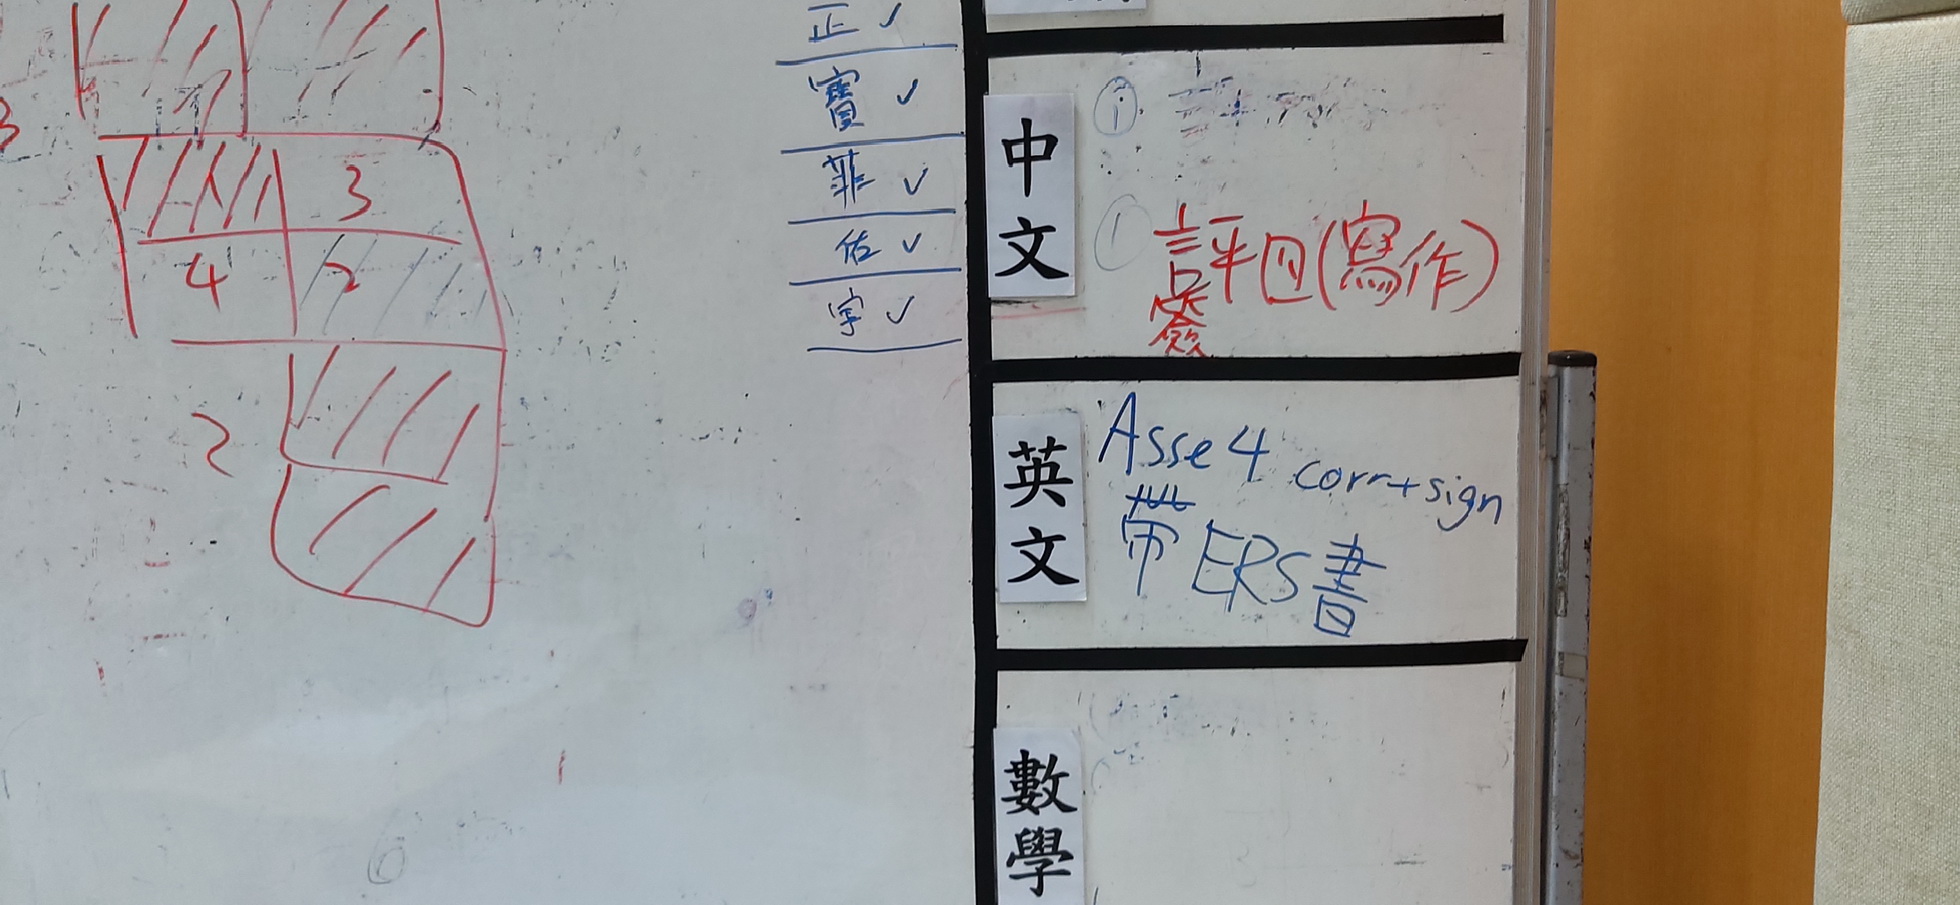 3
3
4 2
2
正 ✓
寶 ✓
菲 ✓
佑 ✓
宇 ✓
中文
① 評回(寫作)
簽
英文
Asse 4 corr+sign
帶 ERS書
數學